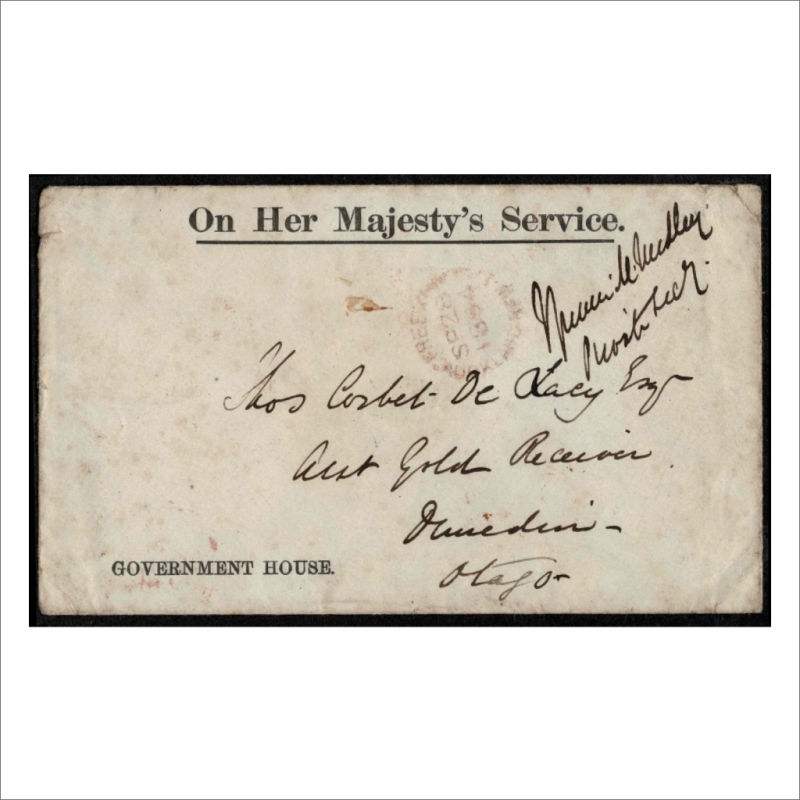 On Her Majesty's Service.
Private Secy.
FREE
SP 29
1864
Thos Corbet De Lacy Esqr
Asst Gold Receiver
Dunedin -
Otago -
GOVERNMENT HOUSE.